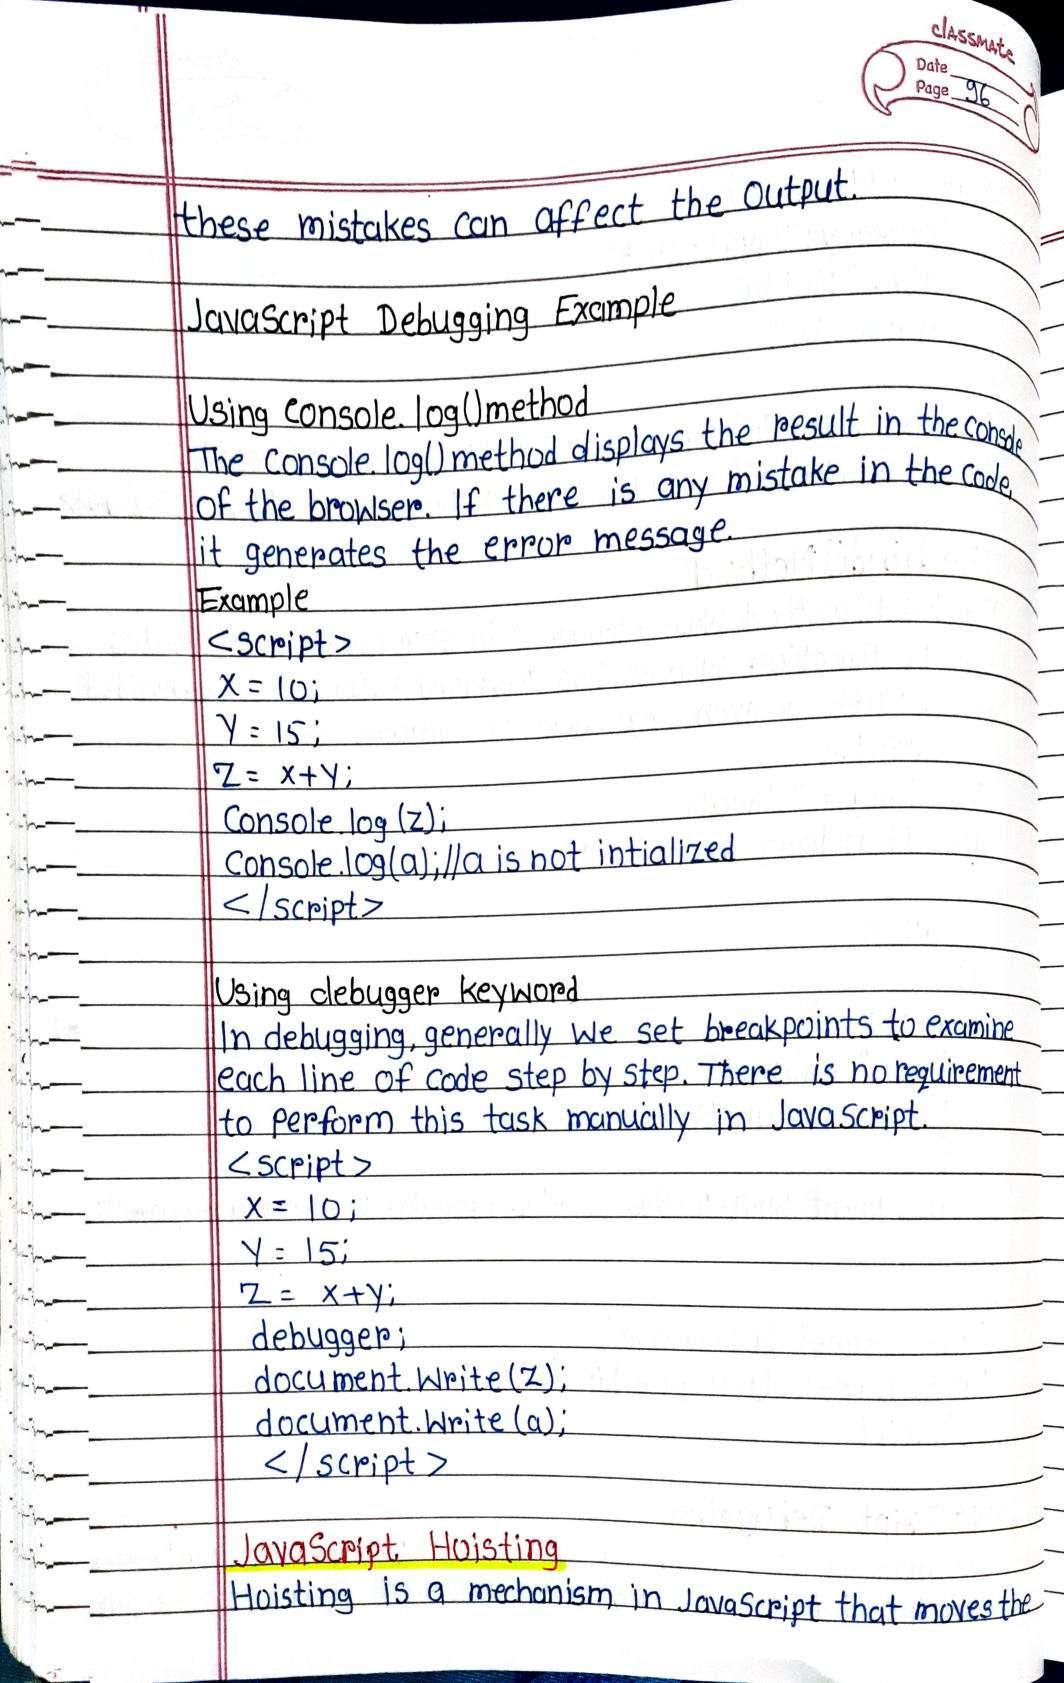 classmate
Date
Page 96
these mistakes can affect the output.
JavaScript Debugging Example
Using console.log() method
The console.log() method displays the result in the console
of the browser. If there is any mistake in the code,
it generates the error message.
Example
<script>
x = 10;
y = 15;
z = x+y;
Console.log(z);
Console.log(a);//a is not intialized
</script>
Using debugger keyword
In debugging, generally we set breakpoints to examine
each line of code step by step. There is no requirement
to perform this task manually in JavaScript.
<script>
x = 10;
y = 15;
z = x+y;
debugger;
document.write(z);
document.write(a);
</script>
JavaScript Hoisting
Hoisting is a mechanism in JavaScript that moves the